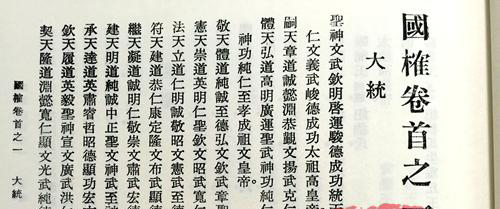 國榷卷首之
大統
聖神文武欽明啓運駿德成功統
仁文義武峻德成功太祖高皇
嗣天章道誠懿淵恭覲文揚武克
體天弘道高明廣運聖武神功純仁
神功純仁至孝成祖文皇帝。
敬天體道純誠至德弘文欽武章聖
憲天崇道英明仁聖欽文昭武寬仁
法天立道仁明誠敬昭文憲武至德
符天建道恭仁康定隆文布武顯德
繼天凝道誠明仁敬崇文肅武宏德
建天明道純誠中正聖文神武至
承天達道英肅睿哲昭德顯功宏文
欽天履道英毅聖神宣文廣武洪仁
契天隆道淵懿寬仁顯文光武純德
國榷卷首之一 大統